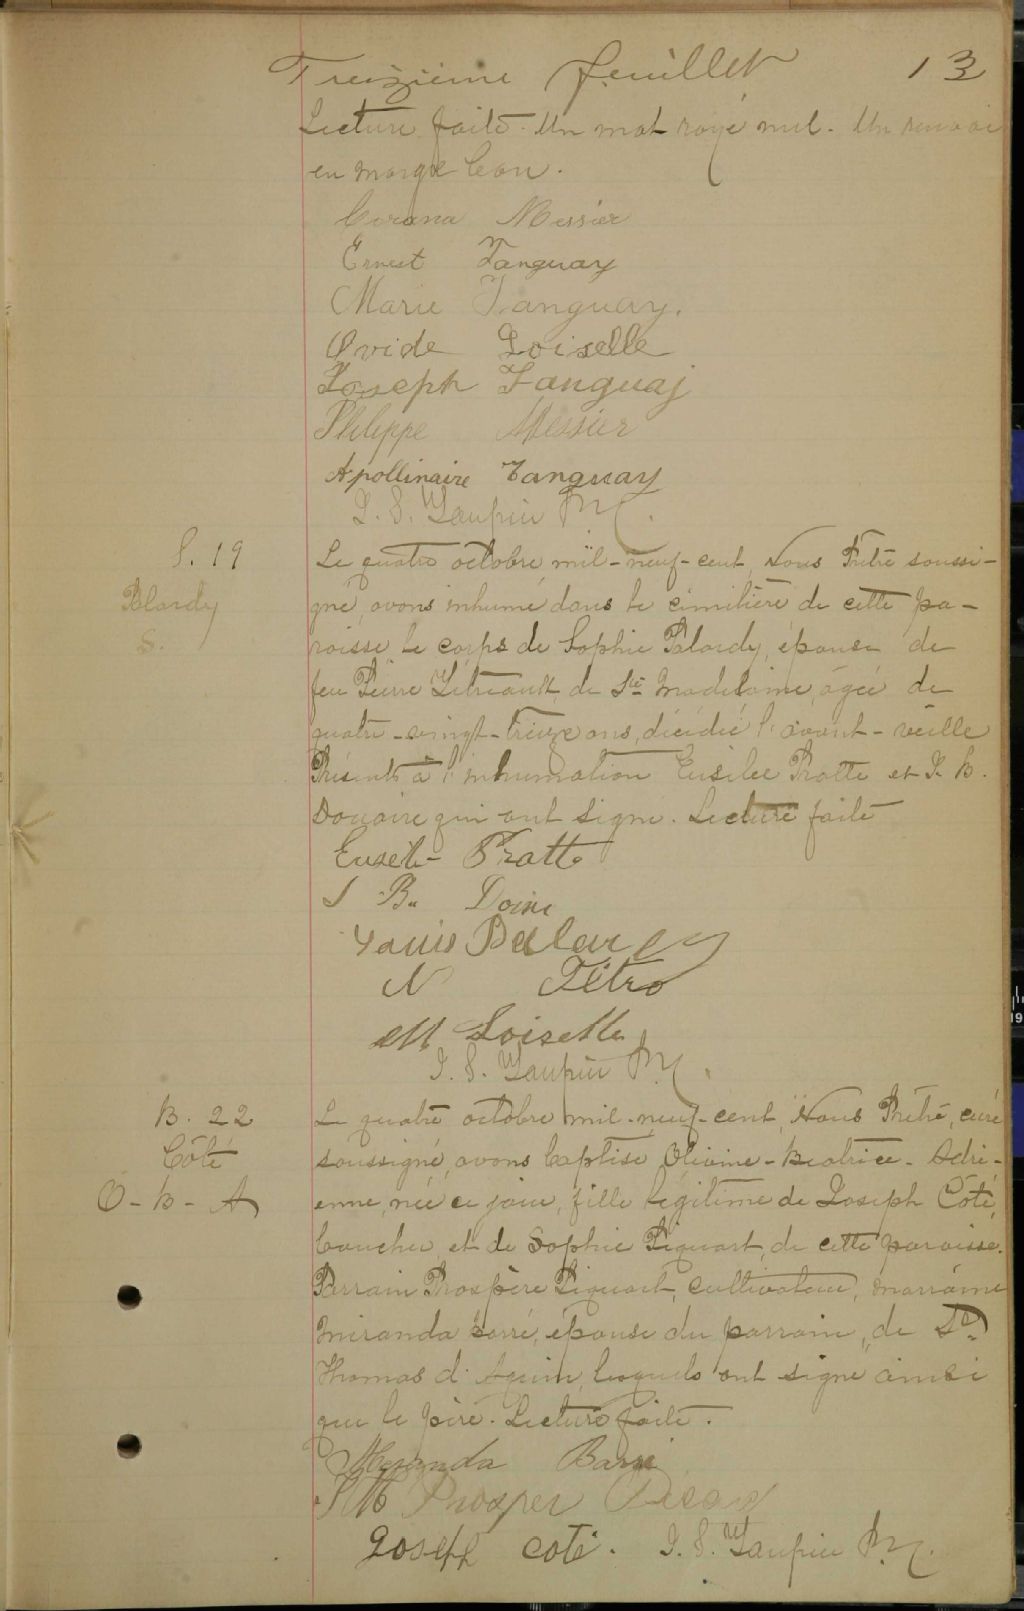 Treizième feuillet 13
Lecture faite. Un mot rayé nul. Un renvoi
en marge bon.
Corona Messier
Ernest Tanguay
Marie Tanguay.
Ovide Loiselle
Joseph Tanguay
Philippe Messier
Apollinaire Tanguay
J. S. Taupin
S. 19
Palardy
S.
Le quatre octobre mil-neuf-cent, Nous Prêtre soussi-
gné, avons inhumé dans le cimitière de cette pa-
roisse le corps de Sophie Palardy, épouse de
feu Pierre Létreault, de Ste Madeleine, âgée de
quatre-vingt-treize ans, décédée l'avant-veille
Présents à l'inhumation Eusèbe Pratte et J. B.
Douaire qui ont signé. Lecture faite
Euseb Pratte
J B.
Louis
N Tétro
M Loiselle
J. S. Taupin
B. 22
Côté
O-B-A
Le quatre octobre mil-neuf-cent, Nous Prêtre, curé
soussigné, avons baptisé Olivine-Beatrice-Adri-
enne, née ce jour, fille légitime de Joseph Côté,
boucher et de Sophie Piquart, de cette paroisse.
Parrain Prospère Piquart, cultivateur, marraine
Miranda Barré, épouse du parrain, de St
Thomas d'Aquin, lesquels ont signé ainsi
que le père. Lecture faite.
Meranda Barre
Prosper
Joseph coté. J. S. Taupin